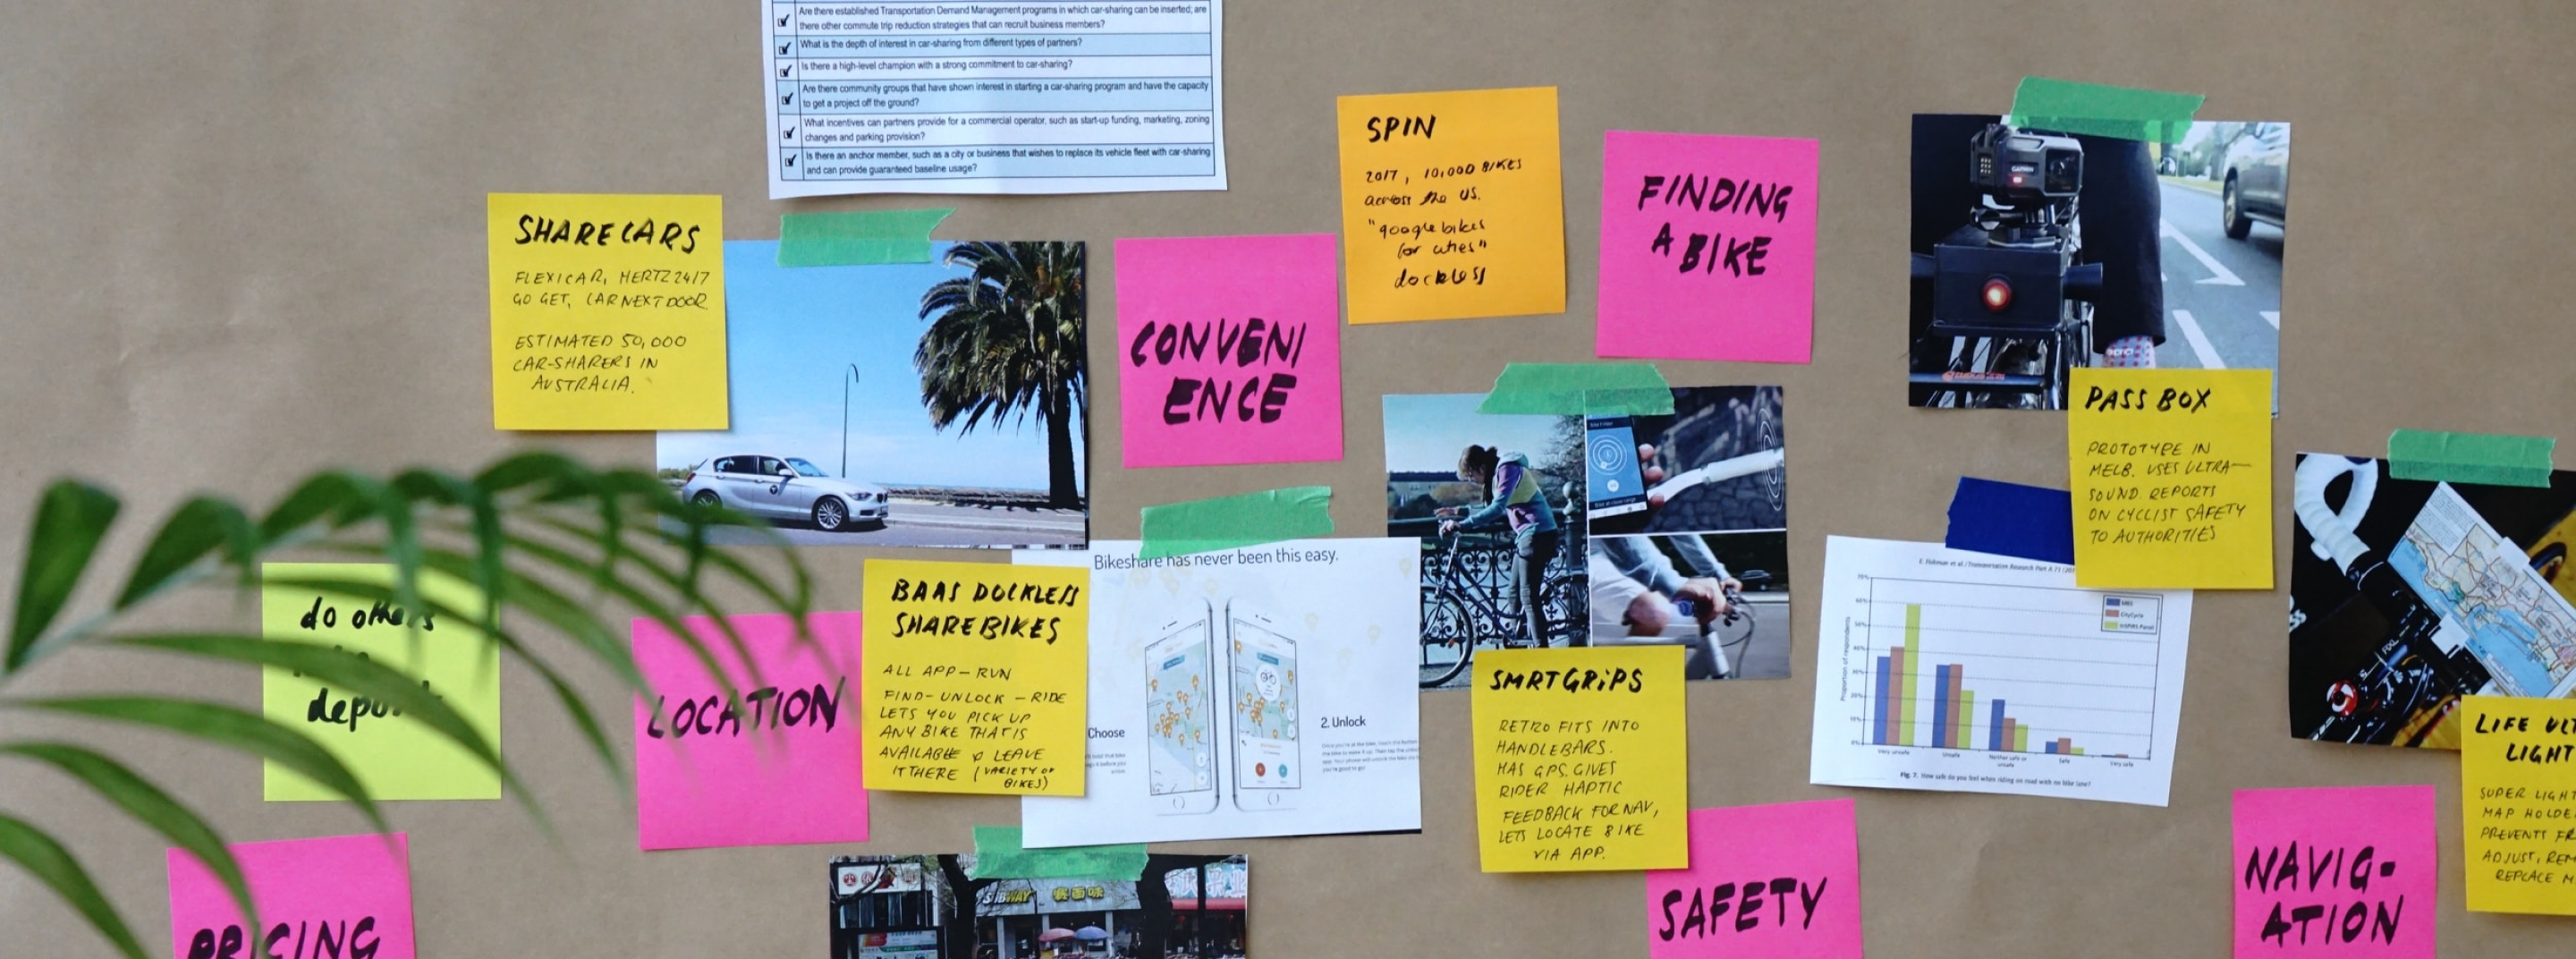 Are there established Transportation Demand Management programs in which car-sharing can be inserted; are
there other commute trip reduction strategies that can recruit business members?
What is the depth of interest in car-sharing from different types of partners?
Is there a high-level champion with a strong commitment to car-sharing?
Are there community groups that have shown interest in starting a car-sharing program and have the capacity
to get a project off the ground?
What incentives can partners provide for a commercial operator, such as start-up funding, marketing, zoning
changes and parking provision?
Is there an anchor member, such as a city or business that wishes to replace its vehicle fleet with car-sharing
and can provide guaranteed baseline usage?
SHARECARS
FLEXICAR, HERTZ 24/7
GO GET, CARNEXTDOOR
ESTIMATED 50,000
CAR-SHARERS IN
AUSTRALIA.
CONVENI
ENCE
SPIN
2017, 10,000 BIKES
across the US.
"google bikes
for cities"
dockless
FINDING
A BIKE
GARMIN
PASS BOX
PROTOTYPE IN
MELB. USES ULTRA-
SOUND. REPORTS
ON CYCLIST SAFETY
TO AUTHORITIES
do others
LOCATION
BAAS DOCKLESS
SHAREBIKES
ALL APP-RUN
FIND-UNLOCK-RIDE
LETS YOU PICK UP
ANY BIKE THAT IS
AVAILABLE & LEAVE
IT THERE (VARIETY OF
BIKES)
Bikeshare has never been this easy.
Choose
2. Unlock
SMRTGRiPS
RETRO FITS INTO
HANDLEBARS.
HAS GPS, GIVES
RIDER HAPTIC
FEEDBACK FOR NAV,
LETS LOCATE BIKE
VIA APP.
E. Fishman et al. / Transportation Research Part A 71 (201
Proportion of respondents
70%
60%
50%
40%
30%
20%
10%
0%
MBS
CityCycle
Very unsafe
Unsafe
Neither safe or
unsafe
Safe
Very safe
Fig. 7. How safe do you feel when riding on road with no bike lane?
LIFE UL
LIGHT
SUPER LIGHT
MAP HOLDE
PREVENTS FR
ADJUST, REM
REPLACE M
PRICING
SUBWAY 赛百味
SAFETY
NAVIG-
ATION